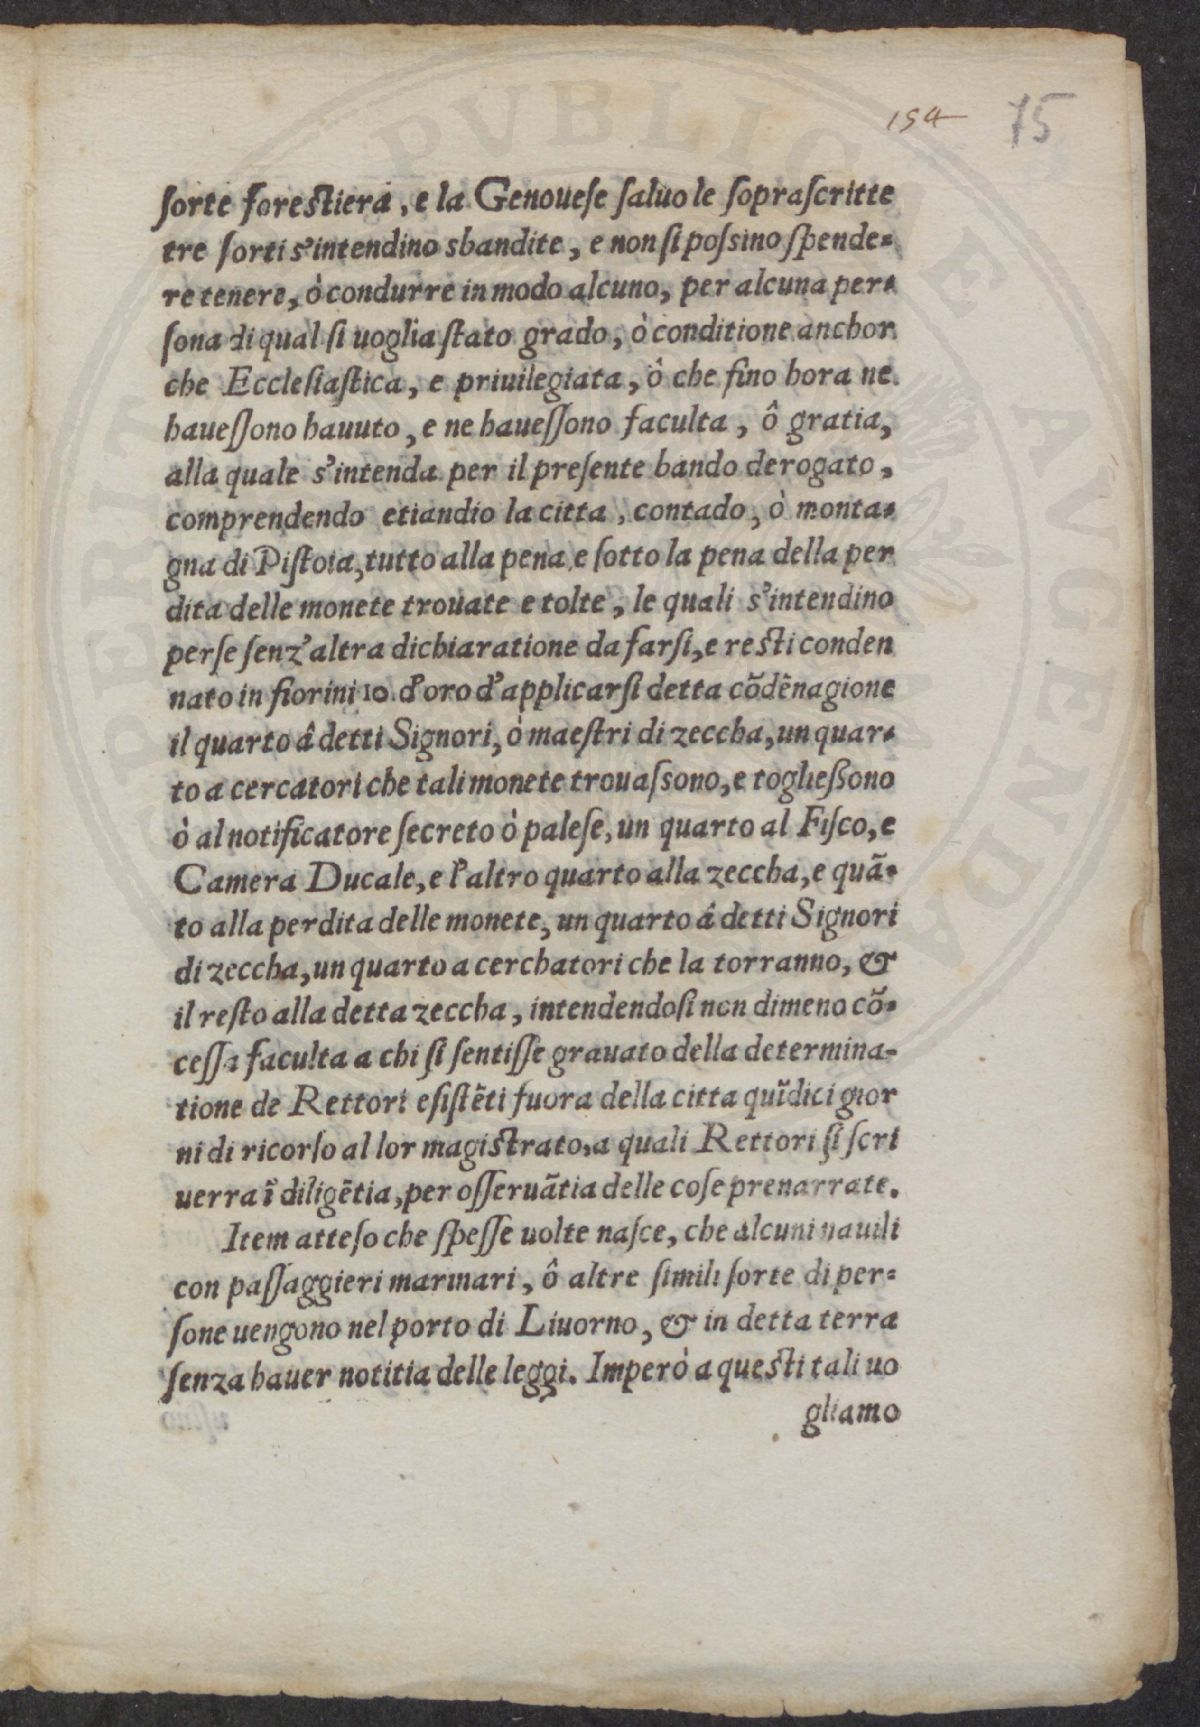 194 75
sorte forestiera, e la Genouese saluo le soprascritte
tre sorti s'intendino sbandite, e non si possino spende=
re tenere, ò condurre in modo alcuno, per alcuna per=
sona di qual si uoglia stato grado, ò conditione anchor
che Ecclesiastica, e priuilegiata, ô che fino hora ne
hauessono hauuto, e ne hauessono faculta, ô gratia,
alla quale s'intenda per il presente bando derogato,
comprendendo etiandio la citta, contado, ò monta=
gna di Pistoia, tutto alla pena e sotto la pena della per
dita delle monete trouate e tolte, le quali s'intendino
perse senz'altra dichiaratione da farsi, e resti conden
nato in fiorini 10. d'oro d'applicarsi detta cõdẽnagione
il quarto â detti Signori, ò maestri di zeccha, un quar=
to a cercatori che tali monete trouassono, e togliessono
ò al notificatore secreto ò palese, un quarto al Fisco, e
Camera Ducale, e l'altro quarto alla zeccha, e quã=
to alla perdita delle monete, un quarto â detti Signori
di zeccha, un quarto a cerchatori che la torranno, &
il resto alla detta zeccha, intendendosi non dimeno cõ=
cessa faculta a chi si sentisse grauato della determina-
tione de Rettori esistẽti fuora della citta quĩdici gior
ni di ricorso al lor magistrato, a quali Rettori si scri
uerra ĩ diligẽtia, per osseruãtia delle cose prenarrate.
Item atteso che spesse uolte nasce, che alcuni nauili
con passaggieri marinari, ô altre simili sorte di per=
sone uengono nel porto di Liuorno, & in detta terra
senza hauer notitia delle leggi. Imperò a questi tali uo
gliamo